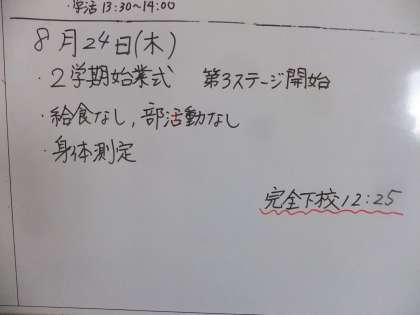 ・学活 13:30~14:00
8月24日(木)
・2学期始業式 第3ステージ開始
・給食なし, 部活動なし
・身体測定
完全下校12:25